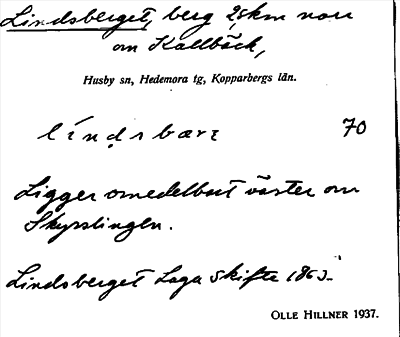 Lindsberget, berg 2,5 km norr
om Kallbäck,
Husby sn, Hedemora tg, Kopparbergs län.
líndsbærε 70
Ligger omedelbart väster om
Skysslingen.
Lindsberget Laga skifte 1863.
OLLE HILLNER 1937.